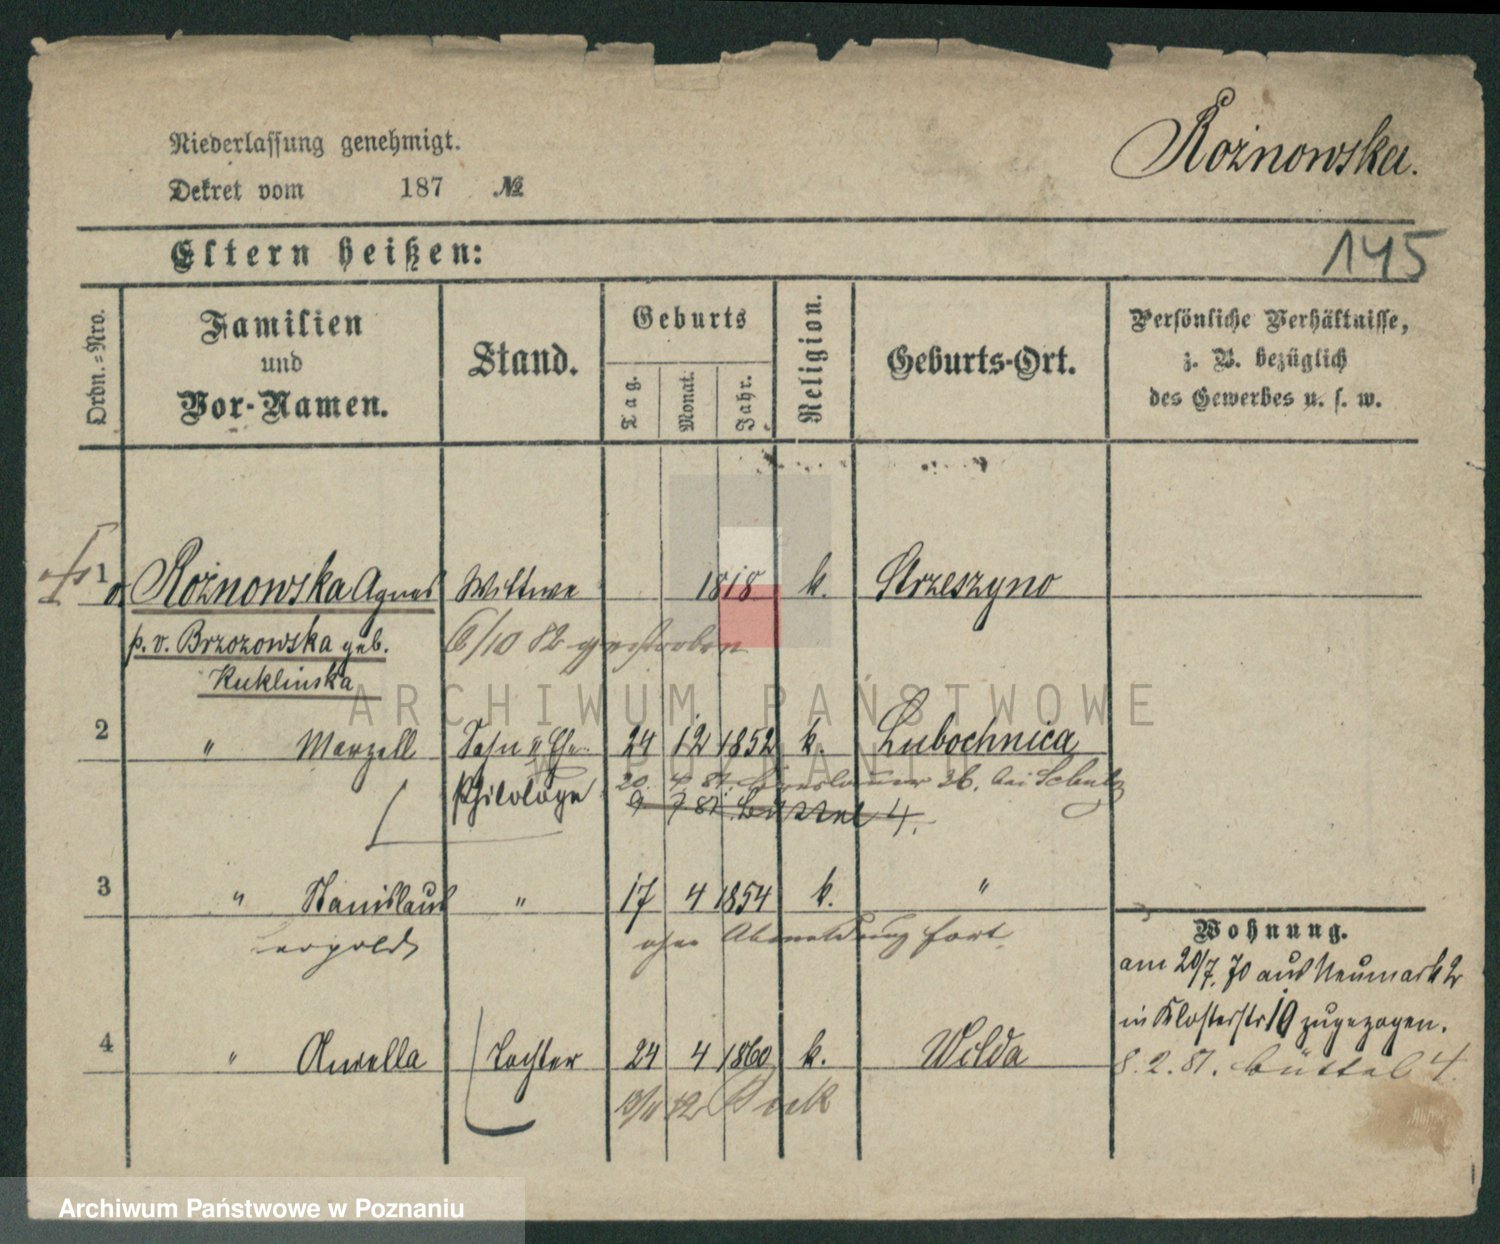 Niederlassung genehmigt.
Dekret vom 187 №
Rożnowska.
Eltern heißen:
145
Ordn.-Nro.
Familien
und
Vor-Namen.
Stand.
Geburts
Tag.
Monat.
Jahr.
Religion.
Geburts-Ort.
Persönliche Verhältnisse,
z. B. bezüglich
des Gewerbes u. s. w.
1 Rożnowska Agnes Wittwe 1818 k. Strzeszyno
p. v. Brzozowska geb. 6/10 82 gestorben
Kuklinska
2 " Marzell Sohn 24 12 1852 k. Lubochnica
Philologe 20. 4. 81. Breslauer 36. bei Schulz
9 7 81. Büttel 4.
3 " Stanislaus " 17 4 1854 k. "
Leopold ohne Abmeldung fort
Wohnung.
am 20/7. 70 aus Neumark 2
in Klosterstr 10 zugezogen.
8. 2. 81. Büttel 4.
4 " Aurella Tochter 24 4 1860 k. Wilda
ARCHIWUM PAŃSTWOWE
W POZNANIU
Archiwum Państwowe w Poznaniu